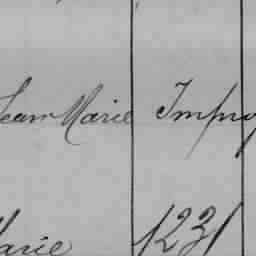 Jean Marie Impro
Marie 1231